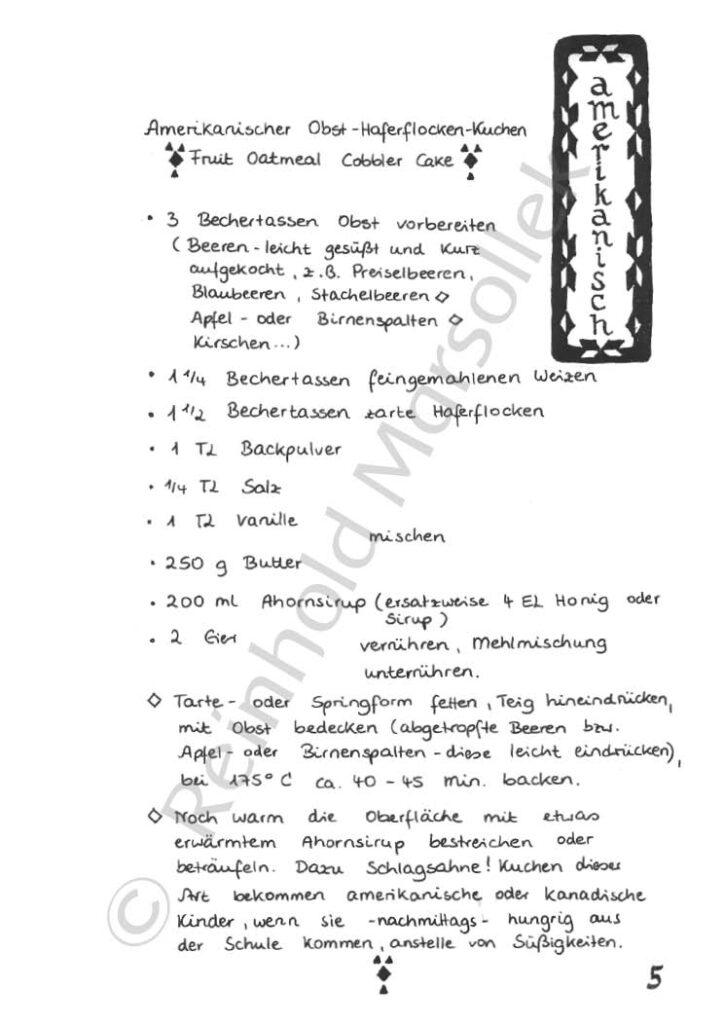 amerikanisch
Amerikanischer Obst-Haferflocken-Kuchen
Fruit Oatmeal Cobbler Cake
• 3 Bechertassen Obst vorbereiten
(Beeren - leicht gesüßt und kurz
aufgekocht, z.B. Preiselbeeren,
Blaubeeren, Stachelbeeren ◇
Apfel- oder Birnenspalten ◇
Kirschen...)
• 1 1/4 Bechertassen feingemahlenen Weizen
• 1 1/2 Bechertassen zarte Haferflocken
• 1 TL Backpulver
• 1/4 TL Salz
• 1 TL Vanille
mischen
• 250 g Butter
• 200 ml Ahornsirup (ersatzweise 4 EL Honig oder
Sirup)
• 2 Eier verrühren, Mehlmischung
unterrühren.
◇ Tarte- oder Springform fetten, Teig hineindrücken,
mit Obst bedecken (abgetropfte Beeren bzw.
Apfel- oder Birnenspalten - diese leicht eindrücken),
bei 175°C ca. 40-45 min. backen.
◇ Noch warm die Oberfläche mit etwas
erwärmtem Ahornsirup bestreichen oder
beträufeln. Dazu Schlagsahne! Kuchen dieser
Art bekommen amerikanische oder kanadische
Kinder, wenn sie -nachmittags- hungrig aus
der Schule kommen, anstelle von Süßigkeiten.
5
© Reinhold Marsollek